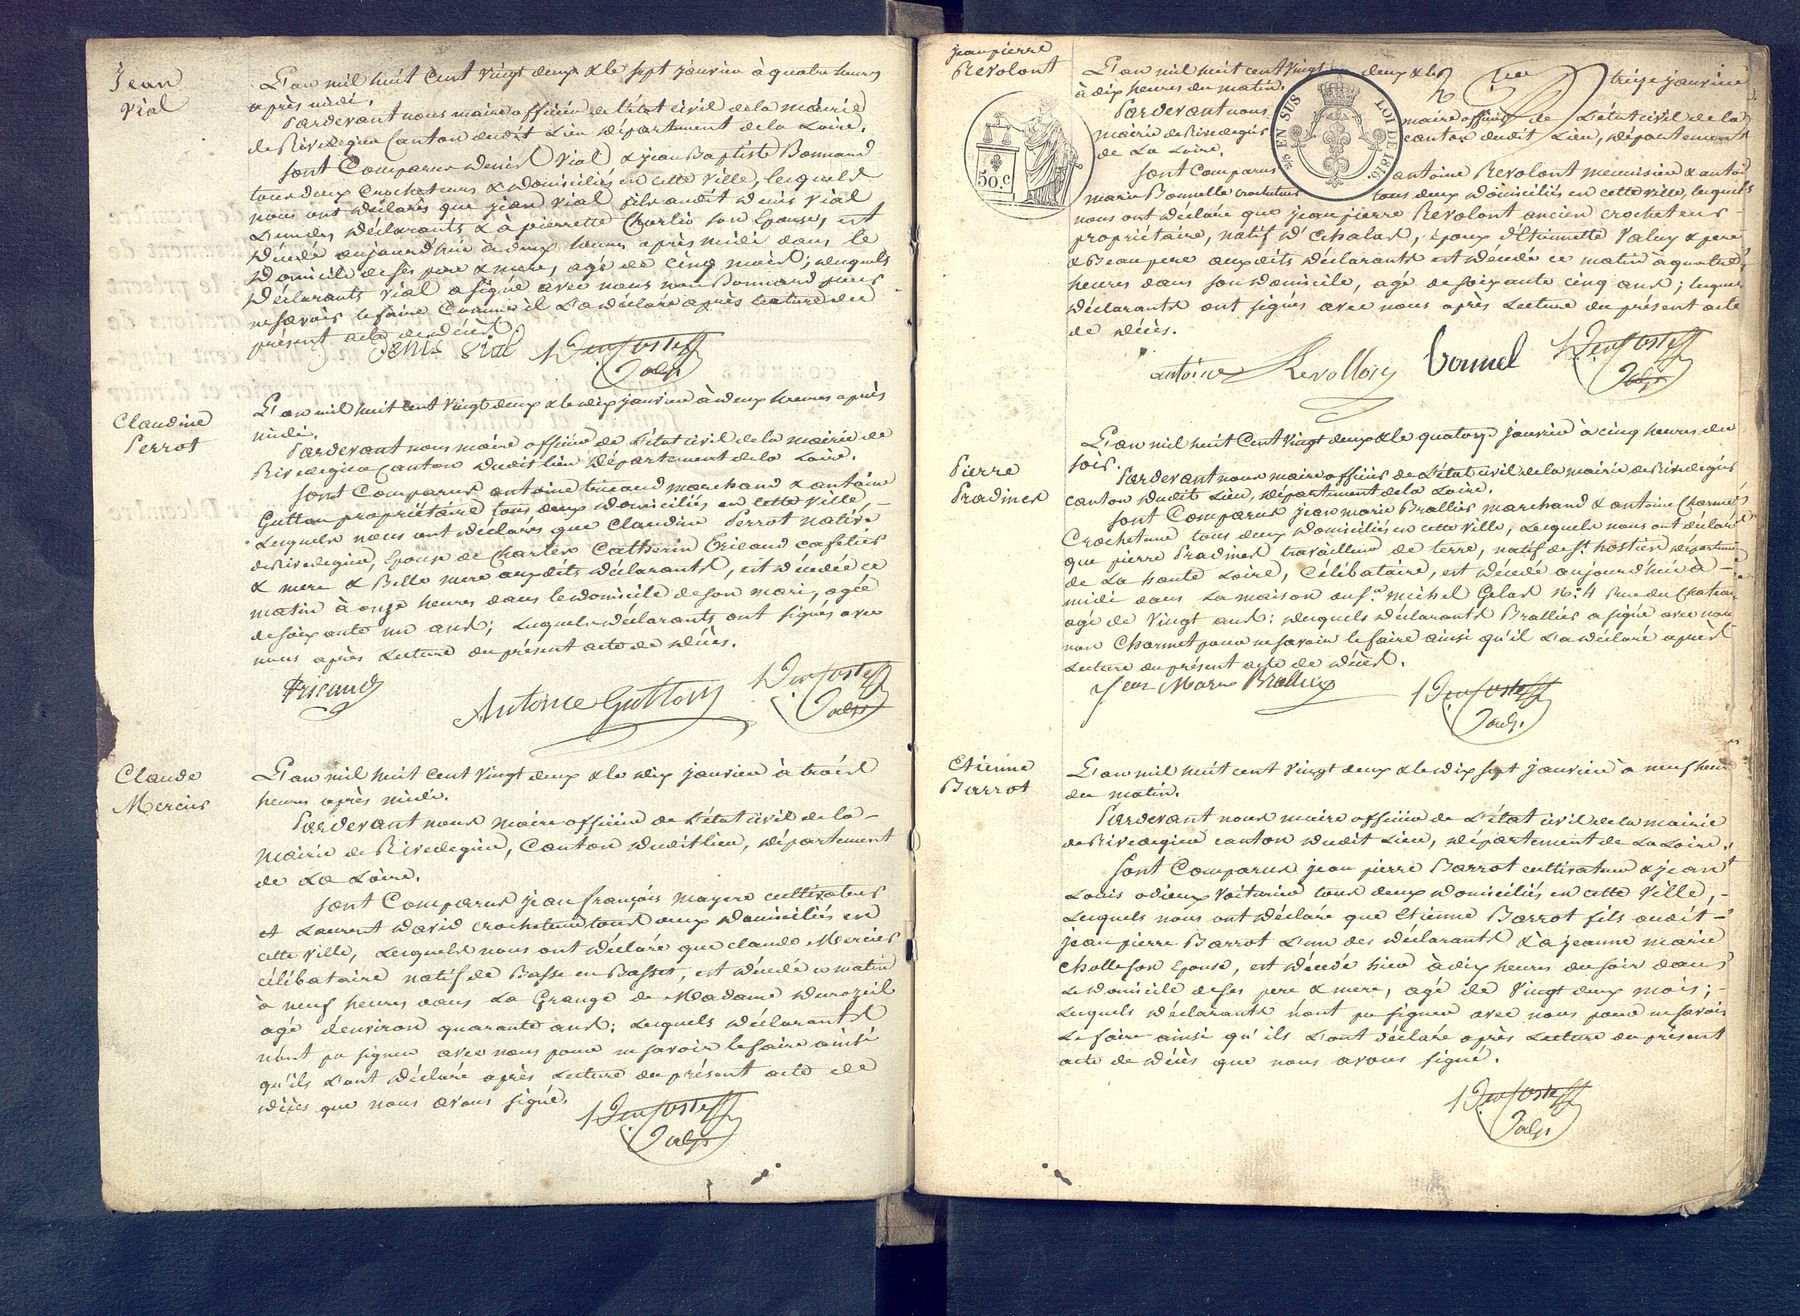 Jean
Vial
L'an mil huit cent vingt deux & le sept janvier à quatre heures
après midi.
Pardevant nous maire officier de l'état civil de la mairie
de Rivedegier Canton dudit Lieu Département de la Loire.
sont Comparus Denis Vial & jean Baptiste Bonnard
tous deux Crocheteurs & Domiciliés en cette Ville, lesquels
nous ont déclarés que jean Vial fils audit Denis Vial
L'un des déclarants & à pierrette Charlio son Epouse, est
décédé aujourd'hui à deux heures après midi dans le
Domicile de ses pere & mere, agé de Cinq mois; desquels
déclarants Vial a signé avec nous non Bonnard pour
ne savoir le faire Comme il L'a déclaré après Lecture du
présent acte de décès.
denis vial
Claudine
Perrot
L'an mil huit Cent Vingt deux & le dix janvier à deux heures après
midi.
Pardevant nous maire officier de L'état civil de la mairie de
Rivedegier Canton dudit lieu Département de la Loire.
sont Comparus antoine Tricaud marchand & antoine
Gutton propriétaire tous deux Domiciliés en cette Ville,
Lesquels nous ont déclarés que Claudine Perrot native
de Rivedegier, Epouse de Charles Catherin Tricaud cafetier
& mere & Belle mere auxdits déclarants, est décédée ce
matin à onze heures dans le domicile de son mari, agée
de soixante un ans; Lesquels déclarants ont signés avec
nous après Lecture du présent acte de décès.
Tricaud
Antoine Gutton
Claude
Mercier
L'an mil huit cent Vingt deux & le dix janvier à trois
heures après midi.
Pardevant nous Maire officier de L'état civil de la
Mairie de Rivedegier, Canton dudit lieu, département
de La Loire.
sont Comparus jean françois mayere cultivateur
et Laurent david crocheteur tous deux domiciliés en
cette Ville, Lesquels nous ont déclaré que claude Mercier
célibataire natif de Basse en Basset, est décédé ce matin
à neuf heures dans La Grange de Madame Durozeil
agé d'environ quarante ans; Lesquels déclarants
n'ont pu signer avec nous pour ne savoir le faire ainsi
qu'ils L'ont déclaré après Lecture du présent acte de
décès que nous avons signé.
jean pierre
Revolont
50 c
25 EN SUS LOI DE 1816
L'an mil huit cent Vingt deux & le treize janvier
à dix heures du matin.
Pardevant nous maire officier de L'état civil de la
mairie de Rivedegier canton dudit Lieu, département
de La Loire.
sont Comparus antoine Revolont menuisier & antoi
marie Bonnelle crocheteur tous deux Domiciliés en cette Ville, lesquels
nous ont déclaré que jean pierre Revolont ancien crocheteur
propriétaire, natif d'Echalas, époux d'Etiennette Valuy & pere
& Beau pere auxdits déclarants est décédé ce matin à quatre
heures dans son domicile, agé de soixante cinq ans; lesquels
déclarants ont signés avec nous après Lecture du présent acte
de décès.
antoine Revollon bonnel
Pierre
Pradines
L'an mil huit Cent Vingt deux & le quatorze janvier à cinq heures du
soir.
Pardevant nous maire officier de L'état civil de la mairie de Rivedegier
canton dudit Lieu, Département de la Loire.
sont Comparus jean marie Brallier marchand & antoine Charmet
Crocheteur tous deux domiciliés en cette Ville, Lesquels nous ont déclaré
que pierre Pradines travailleur de terre, natif de St hostien département
de La haute Loire, Célibataire, est décédé aujourd'hui à
midi dans La maison du Sr. michel Gelas No. 4 Rue du Chateau
agé de Vingt ans; desquels déclarants Brallier a signé avec nous
non Charmet pour ne savoir le faire ainsi qu'il L'a déclaré après
Lecture du présent acte de décès.
Jean Marie Brallier
Etienne
Barrot
L'an mil huit cent Vingt deux & le dix sept janvier à neuf heures
du matin.
Pardevant nous maire officier de L'état civil de la mairie
de Rivedegier canton dudit Lieu, département de La Loire.
sont Comparus jean pierre Barrot cultivateur & jean
Louis odieux Voiturier tous deux domiciliés en cette Ville,
Lesquels nous ont déclaré que Etienne Barrot fils audit
jean pierre Barrot L'un des déclarants & à jeanne marie
Cholle son Epouse, est décédé hier à dix heures du soir dans
Le domicile de ses pere & mere, agé de Vingt deux mois;
Lesquels déclarants n'ont pu signer avec nous pour ne savoir
Le faire ainsi qu'ils L'ont déclaré après Lecture du présent
acte de décès que nous avons signé.